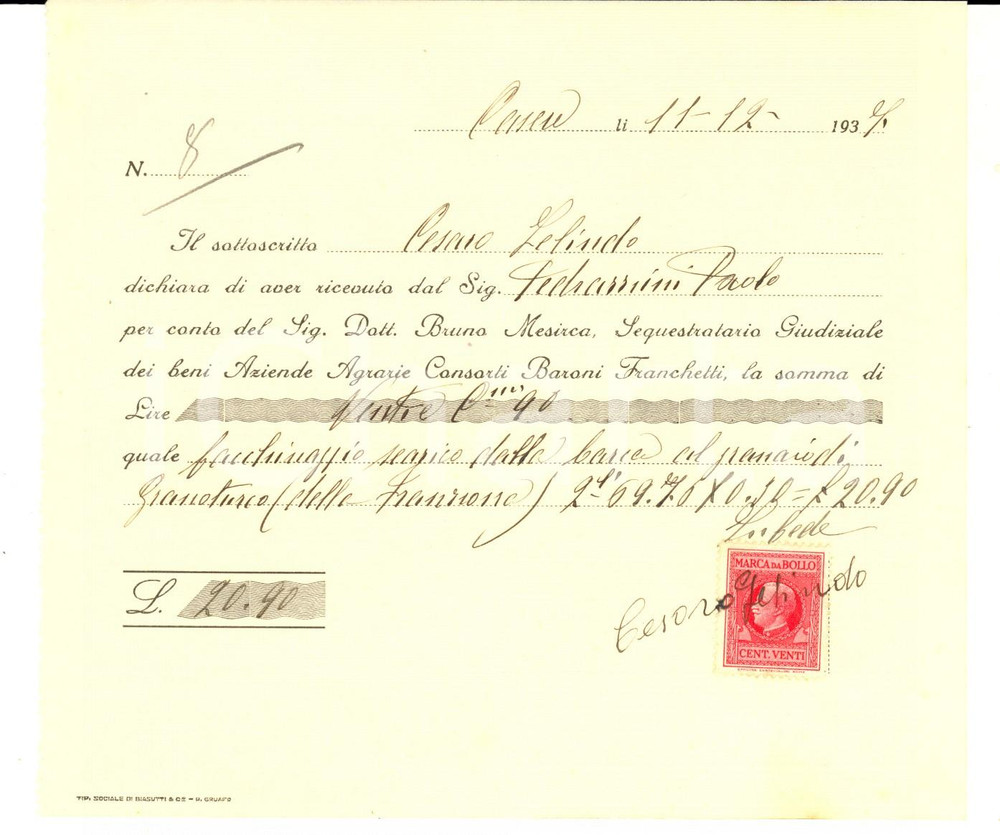 li 11-12- 1937.
N. 8
Il sottoscritto Cesaro Gelindo
dichiara di aver ricevuto dal Sig. Pedrazzini Paolo
per conto del Sig. Dott. Bruno Mesirca, Sequestratario Giudiziale
dei beni Aziende Agrarie Consorti Baroni Franchetti, la somma di
Lire Cmi 90
quale facchinaggio scarico dalla barca al granaio di
Granoturco (della ) 69.70 X 0.30 = £ 20.90
In fede
L. 20.90
Cesaro Gelindo
MARCA DA BOLLO
CENT. VENTI
TIP. SOCIALE DI BIASUTTI & C.